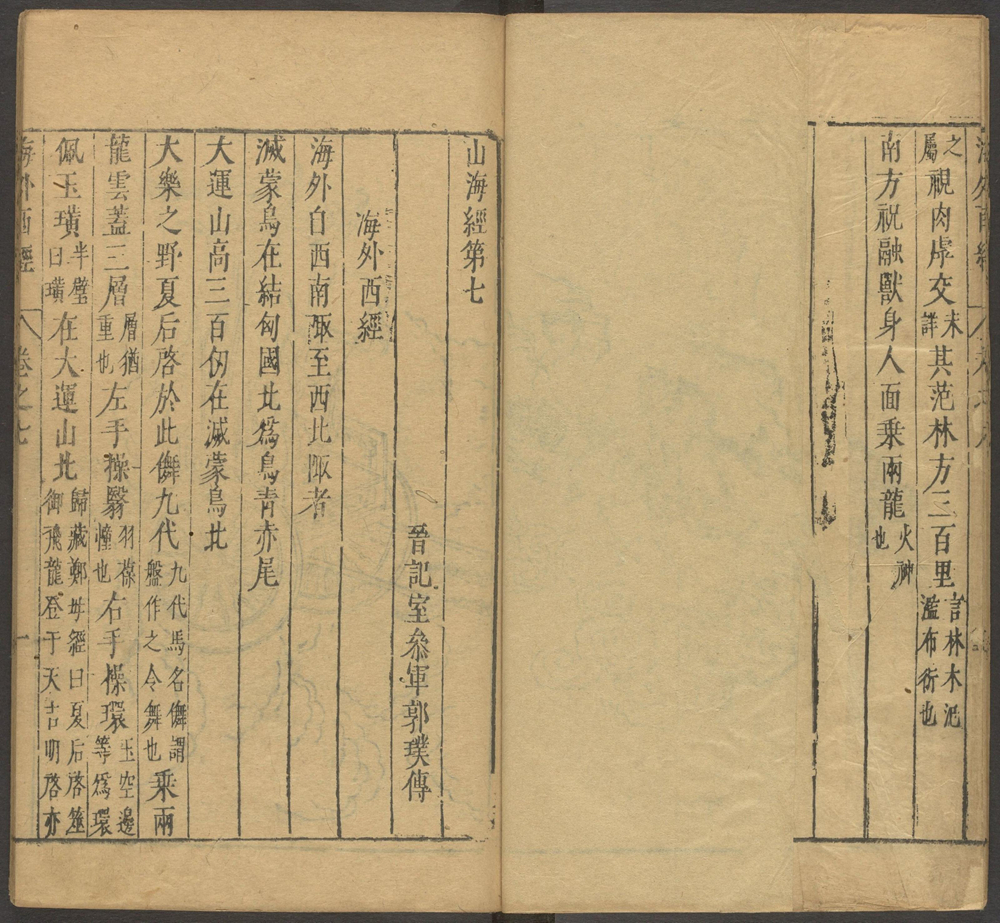 海外南經 卷之六
之屬視肉虖交未詳其范林方三百里言林木氾濫布衍也
南方祝融獸身人面乗兩龍火神也
山海經第七
晉記室叅軍郭璞傳
海外西經
海外自西南陬至西北陬者
滅蒙鳥在結匈國北爲鳥青赤尾
大運山高三百仞在滅蒙鳥北
大樂之野夏后啓於此儛九代九代馬名儛謂盤作之令舞也乗兩
龍雲蓋三層層猶重也左手操翳羽葆幢也右手操環玉空邊等爲環
佩玉璜半璧曰璜在大運山北歸藏鄭母經曰夏后啓筮御飛龍登于天吉明啓亦
海外西經 卷之七 一